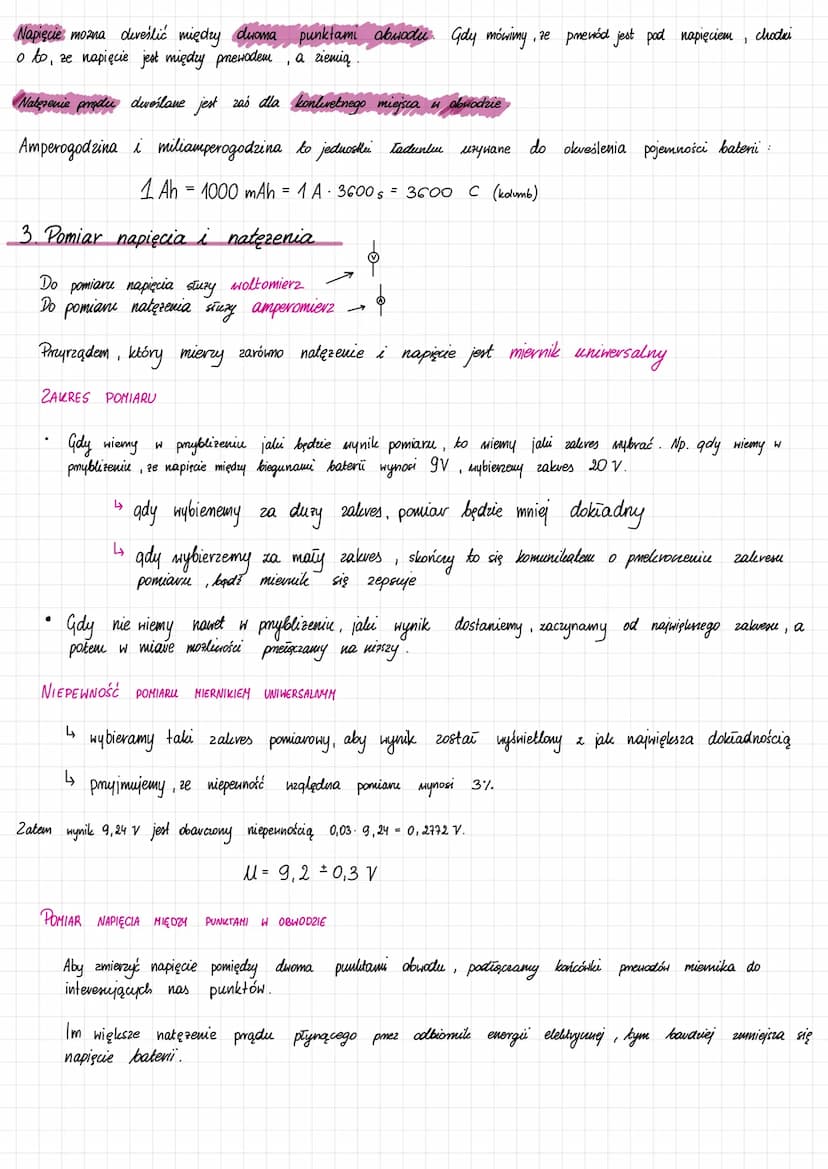 Napięcie można określić między dwoma punktami obwodu. Gdy mówimy, że przewód jest pod napięciem, chodzi
o to, że napięcie jest między przewodem, a ziemią.
Natężenie prądu określane jest zaś dla konkretnego miejsca w obwodzie
Amperogodzina i miliamperogodzina to jednostki ładunku używane do określenia pojemności baterii:
1 Ah = 1000 mAh = 1 A · 3600 s = 3600 C (kolumb)
3. Pomiar napięcia i natężenia
V
Do pomiaru napięcia służy woltomierz →
Do pomiaru natężenia służy amperomierz →
A
Przyrządem, który mierzy zarówno natężenie i napięcie jest miernik uniwersalny
ZAKRES POMIARU
• Gdy wiemy w przybliżeniu jaki będzie wynik pomiaru, to wiemy jaki zakres wybrać. Np. gdy wiemy w
przybliżeniu, że napięcie między biegunami baterii wynosi 9V, wybierzemy zakres 20 V.
↳ gdy wybierzemy za duży zakres, pomiar będzie mniej dokładny
↳ gdy wybierzemy za mały zakres, skończy to się komunikatem o przekroczeniu zakresu
pomiaru, bądź miernik się zepsuje
• Gdy nie wiemy nawet w przybliżeniu, jaki wynik dostaniemy, zaczynamy od największego zakresu, a
potem w miarę możliwości przełączamy na niższy.
NIEPEWNOŚĆ POMIARU MIERNIKIEM UNIWERSALNYM
↳ wybieramy taki zakres pomiarowy, aby wynik został wyświetlony z jak największa dokładnością
↳ przyjmujemy, że niepewność względna pomiaru wynosi 3%.
Zatem wynik 9,24 V jest obarczony niepewnością 0,03 · 9,24 = 0,2772 V.
U = 9,2 ± 0,3 V
POMIAR NAPIĘCIA MIĘDZY PUNKTAMI W OBWODZIE
Aby zmierzyć napięcie pomiędzy dwoma punktami obwodu, podłączamy końcówki przewodów miernika do
interesujących nas punktów.
Im większe natężenie prądu płynącego przez odbiornik energii elektrycznej, tym bardziej zmniejsza się
napięcie baterii.